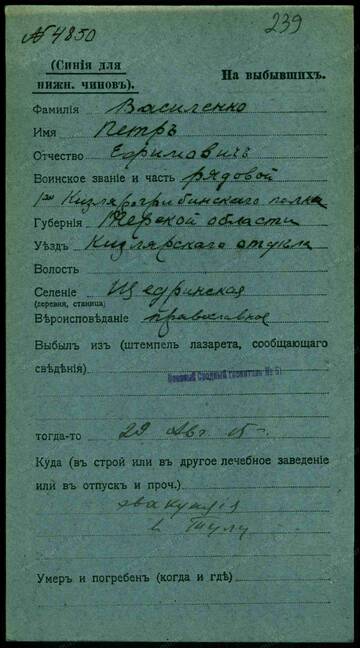 № 4850
239
(Синія для
нижн. чиновъ).
На выбывшихъ.
Фамилія Василенко
Имя Петръ
Отчество Ефимовичъ
Воинское званіе и часть рядовой
1го Кизляро-гребинскаго полка
Губернія Терской области
Уѣздъ Кизлярскаго отдѣла
Волость
Селеніе Щедринская
(деревня, станица)
Вѣроисповѣданіе православное
Выбылъ изъ (штемпель лазарета, сообщающаго
свѣдѣнія)
Военный Сводный госпиталь № 61
тогда-то 29 Авг 15 г.
Куда (въ строй или въ другое лечебное заведеніе
или въ отпускъ и проч.)
эвакуація
въ Тулу
Умеръ и погребенъ (когда и гдѣ)